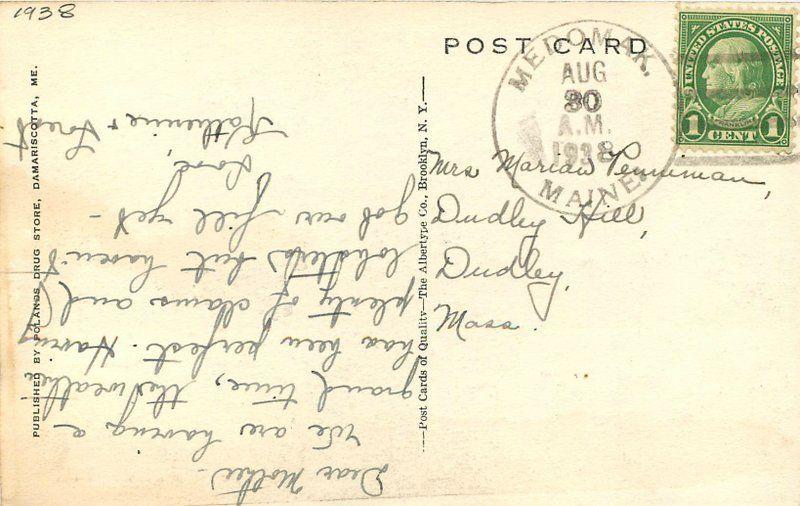 1938
POST CARD
MEDOMAK,
AUG
30
A.M.
1938
MAINE.
UNITED STATES POSTAGE
FRANKLIN
1 CENT 1
Mrs Marian Penniman,
Dudley Hill,
Dudley,
Mass.
Dear Mother -
We are having a
grand time, the weather
has been perfect. Having
plenty of clams and
lobsters but haven't
got our fill yet -
Love,
Katherine + Forest
PUBLISHED BY POLANDS DRUG STORE, DAMARISCOTTA, ME.
—Post Cards of Quality—The Albertype Co., Brooklyn, N. Y.—